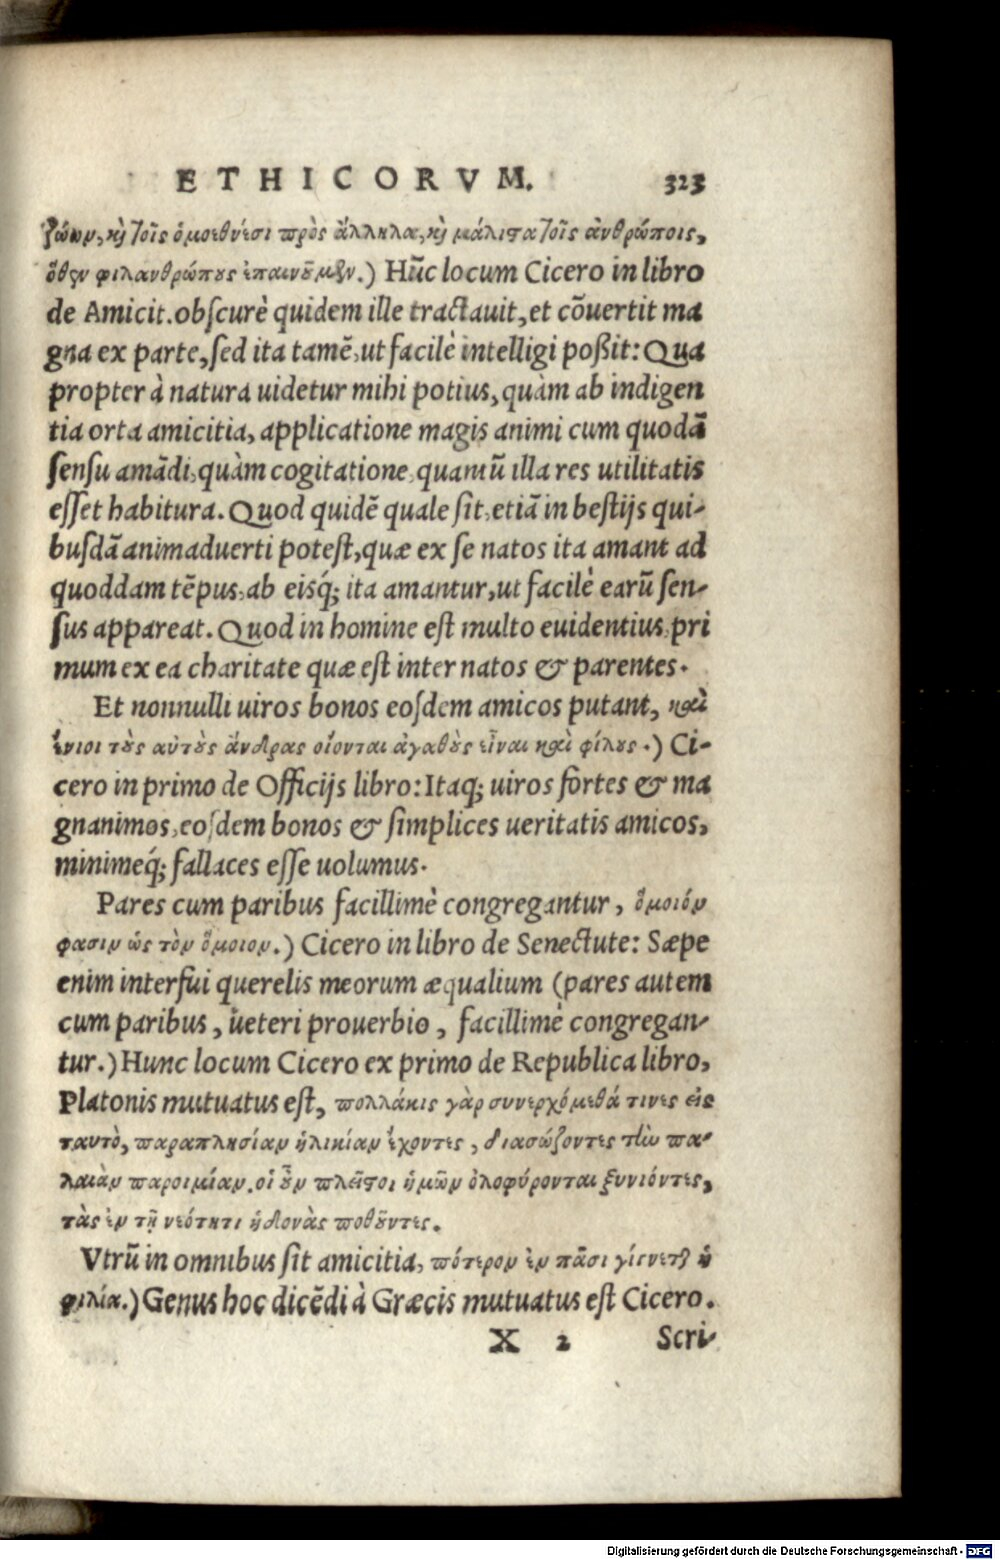 ETHICORVM. 323
ζώων, καὶ τοῖς ὁμοεθνέσι πρὸς ἄλληλα, καὶ μάλιστα τοῖς ἀνθρώποις,
ὅθεν φιλανθρώπους ἐπαινοῦμεν.) Hūc locum Cicero in libro
de Amicit. obſcurè quidem ille tractauit, et cōuertit ma
gna ex parte, ſed ita tamē, ut facilè intelligi poßit: Qua
propter à natura uidetur mihi potius, quàm ab indigen
tia orta amicitia, applicatione magis animi cum quodā
ſenſu amādi, quàm cogitatione, quantū illa res utilitatis
eſſet habitura. Quod quidē quale ſit, etiā in beſtijs qui-
buſdā animaduerti poteſt, quæ ex ſe natos ita amant ad
quoddam tēpus, ab eisq́; ita amantur, ut facilè earū ſen-
ſus appareat. Quod in homine eſt multo euidentius, pri
mum ex ea charitate quæ eſt inter natos & parentes.
Et nonnulli uiros bonos eoſdem amicos putant, καὶ
ἔνιοι τοὺς αὐτοὺς ἄνδρας οἴονται ἀγαθοὺς εἶναι καὶ φίλους.) Ci-
cero in primo de Officijs libro: Itaq; uiros fortes & ma
gnanimos, eoſdem bonos & ſimplices ueritatis amicos,
minimeq́; fallaces eſſe uolumus.
Pares cum paribus facillimè congregantur, ὅμοιόν
φασιν ὡς τὸν ὅμοιον.) Cicero in libro de Senectute: Sæpe
enim interfui querelis meorum æqualium (pares autem
cum paribus, ueteri prouerbio, facillimè congregan-
tur.) Hunc locum Cicero ex primo de Republica libro,
Platonis mutuatus eſt, πολλάκις γὰρ συνερχόμεθά τινες εἰς
ταυτὸ, παραπλησίαν ἡλικίαν ἔχοντες, διασώζοντες τὴν πα-
λαιὰν παροιμίαν. οἱ οὖν πλεῖστοι ἡμῶν ὀλοφύρονται ξυνιόντες,
τὰς ἐν τῇ νεότητι ἡδονὰς ποθοῦντες.
Vtrū in omnibus ſit amicitia, πότερον ἐν πᾶσι γίενεται ἡ
φιλία.) Genus hoc dicēdi à Græcis mutuatus eſt Cicero.
X 2 Scri-
Digitalisierung gefördert durch die Deutsche Forschungsgemeinschaft - DFG